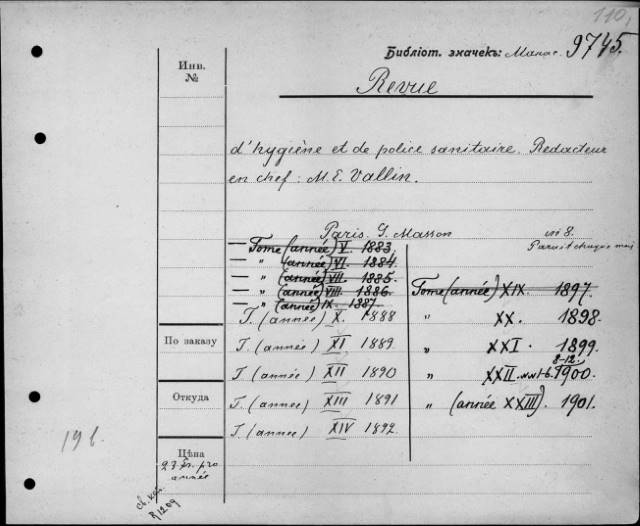 110,
Библіот. значекъ: Магаз. 9745.
Инв.
№
Revue
d'hygiène et de police sanitaire. Redacteur
en chef: M. E. Vallin.
Paris. G. Masson in 8.
Parait chaque mois
— Tome (année) V. 1883
— " (année) VI. 1884
— " (année) VII. 1885
— " (année) VIII. 1886
— " (année) IX. 1887
T. (année) X. 1888
T. (année) XI 1889
T. (année) XII 1890
T. (année) XIII 1891
T. (année) XIV 1892
Tome (année) XIX. 1897.
" XX. 1898.
" XXI. 1899.
8-12.
" XXII. NN 1-6. 1900.
" (année XXIII). 1901.
По заказу
Откуда
19 б.
Цѣна
23 fr. pro
année
R 1209